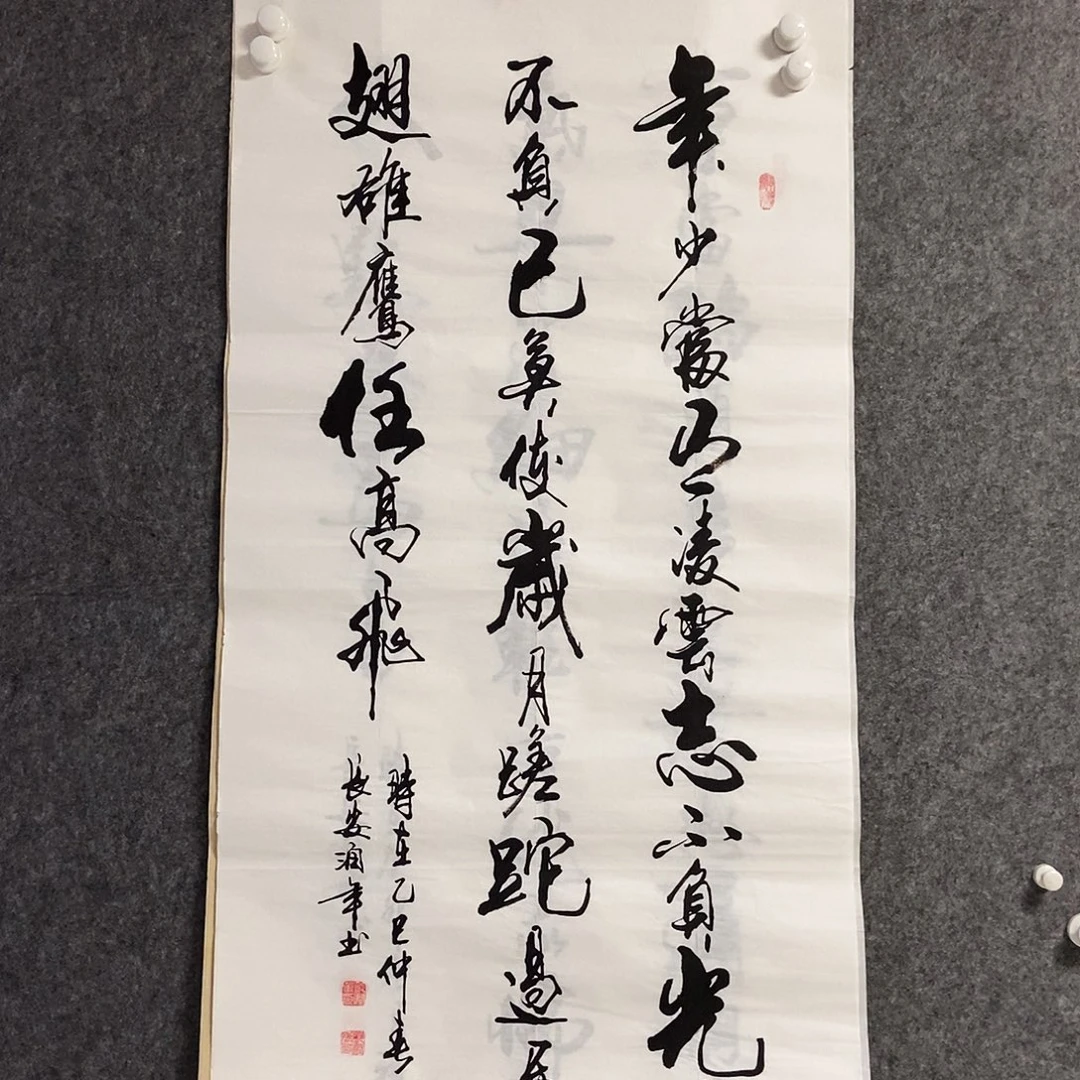 年少當立凌雲志不負光
不負己莫使歲月蹉跎過
翅雄鷹任高飛
時在乙巳仲春
長安潤年书